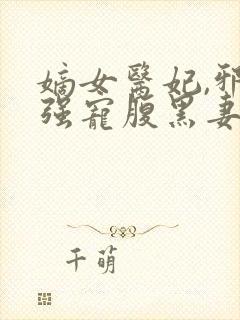 嫡女醫妃,邪
强寵腹黑妻
千萌